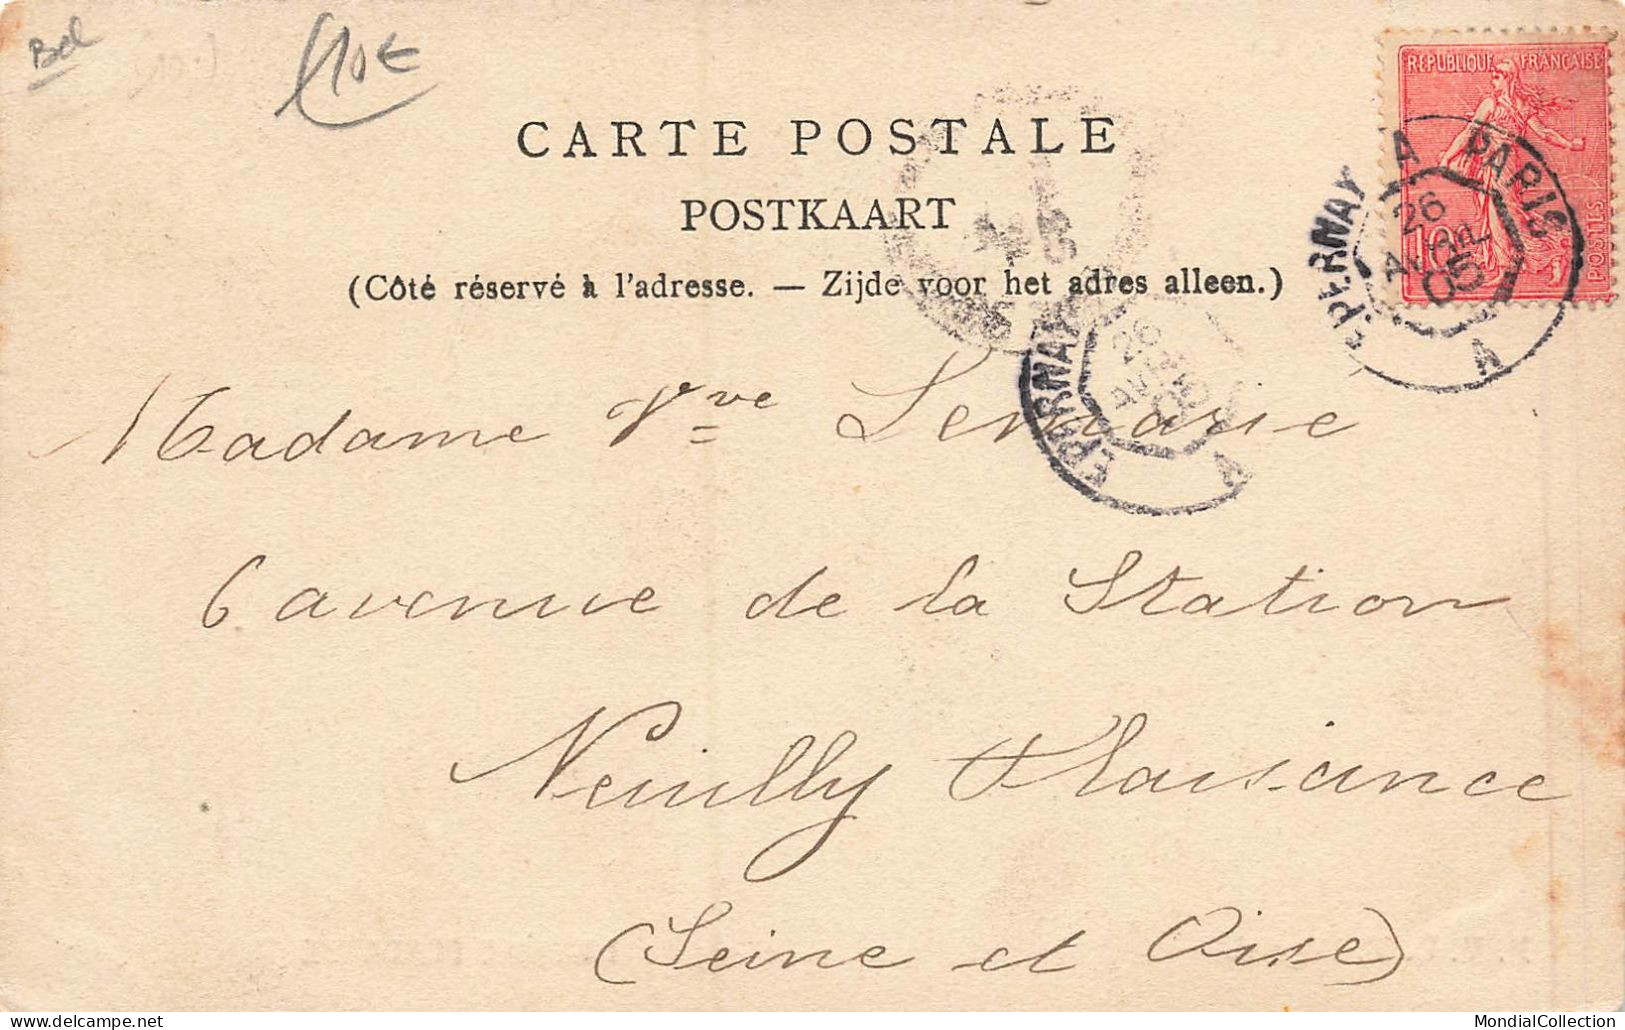 Bel
10€
CARTE POSTALE
POSTKAART
(Côté réservé à l'adresse. — Zijde voor het adres alleen.)
REPUBLIQUE FRANÇAISE
10
POSTES
EPERNAY A PARIS
26
AVRIL
05
A
EPERNAY
26
AVRIL
05
A
Madame Vve Lemarie
6 avenue de la Station
Neuilly Plaisance
(Seine et Oise)
MondialCollection